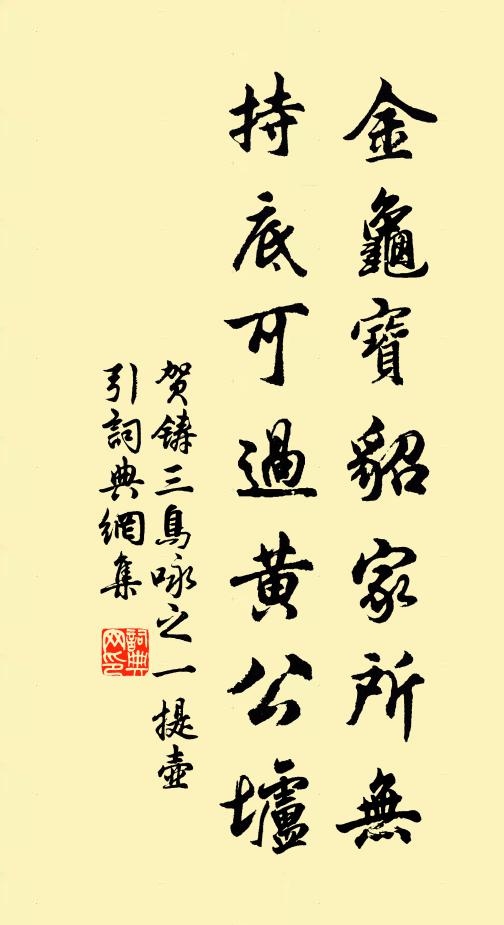 金龜寶貂家所無
持底可過黃公壚
賀鑄三鳥咏之一提壺
引詞典網集
詞典网印